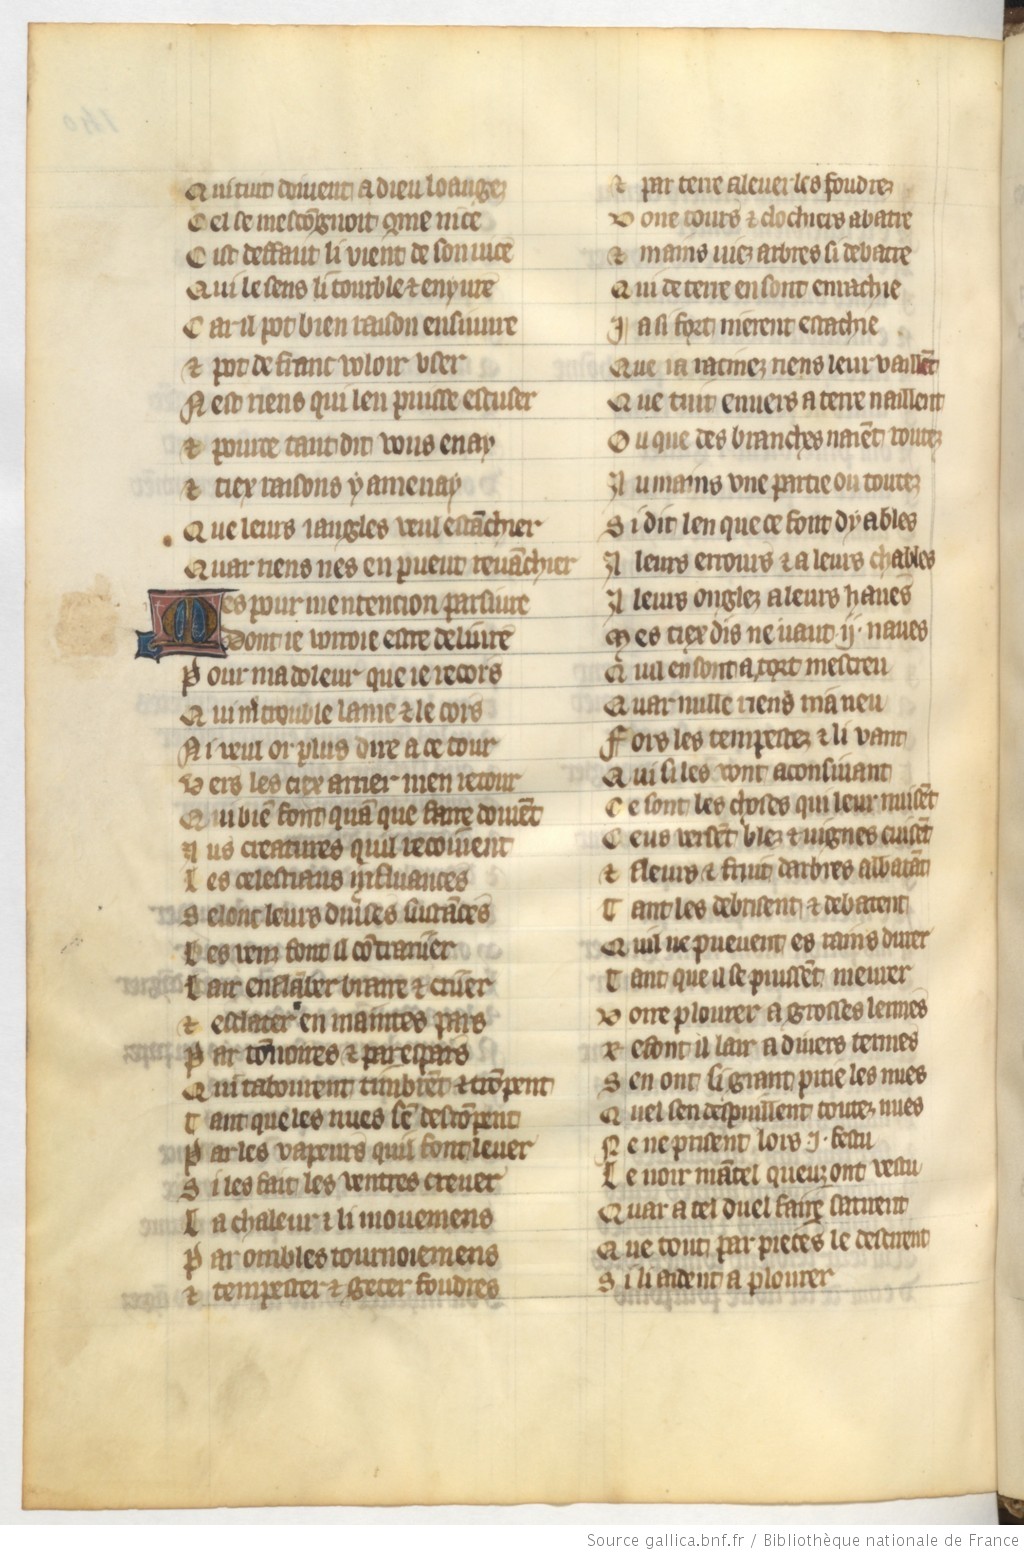 Qui tuit doivent a dieu loange
Cel se mescognoit gme nice
Cist deffaut li vient de son vice
Qui le sens li tourble et enyvre
Car il pot bien raison ensuivre
Et pot de franc voloir user
N est riens qui len puisse escuser
Et pour ce tant dit vous en ay
Et tiex raisons y amenay
Que leurs iangles veul estachier
Quar riens nes en pueut revachier
Mes pour mentencion parsivre
Dont ie vorroie estre delivre
Pour ma doleur que ie recors
Qui m trouble lame et le cors
Ni veul or plus dire a ce tour
Vers les ciex arrier men retour
Qui bie font qua que faire doivet
Aus creatures quil recoivent
Les celestians influances
Selonc leurs diverses sustaces
Les vens font il cotrarier
Lair enflaber braire et crier
Et esclater en maintes pars
Par tonoires et par espars
Qui taborent timbret et tropent
Tant que les nues se desropent
Par les vapeurs quil font lever
Si les fait les ventres crever
La chaleur et li mouemens
Par orribles tournoiemens
Et tempester et geter foudres
Et par terre alever les foudrez
Voire tours et clochiers abatre
Et mains viez arbres si debatre
Qui de terre en sont errachie
Ja si fort nierent estachie
Que ia racinez riens leur vaillet
Que tuit envers a terre naillent
Ou que des branches naiet toutez
Au mains une partie ou toutez
Si dit len que ce font dyables
A leurs errours et a leurs chables
A leurs onglez a leurs haves
Mes tiex dis ne vaut .ij. naves
Quil en sont a tort mescreu
Quar nulle riens ni a neu
Fors les tempestez et li vant
Qui si les vont aconsuivant
Ce sont les choses qui leur nuiset
Ceus verset blez et vignes cuiset
Et fleurs et fruit darbres abbatat
Tant les debrisent et debatent
Quil ne pueuent es rains durer
Tant que il se puisset meurer
Voire plourer a grosses lermes
Refont il lair a divers termes
Sen ont si grant pitie les nues
Quel sen despoillent toutez nues
Ne ne prisent lors .j. festu
Le noir matel queuz ont vestu
Quar a tel duel faire satirent
Que tout par pieces le descirent
Si li aident a plourer
Source gallica.bnf.fr / Bibliothèque nationale de France